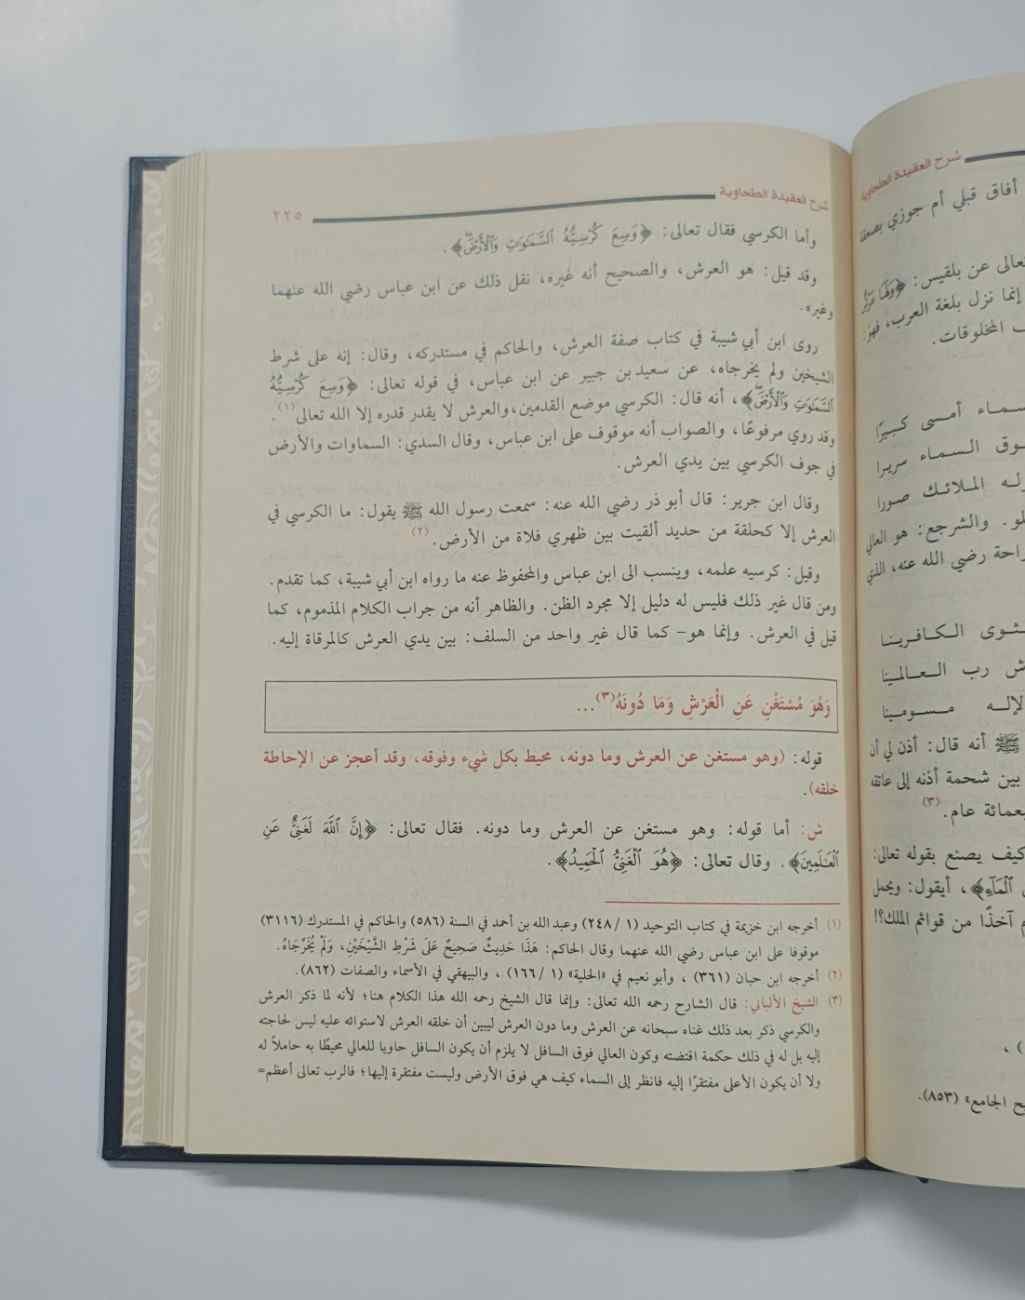 شرح العقيدة الطحاوية
أفاق قبلي أم جوزي بصعقة
تعالى عن بلقيس: ﴿وَلَهَا عَرْشٌ
إنما نزل بلغة العرب، فهو:
المخلوقات.
أمسى كبيرًا
السماء سريرا
الملائك صورا
والشرجع: هو العالي
رواحة رضي الله عنه، الذي
مثوى الكافرينا
رب العالمينا
الإله مسومينا
ﷺ أنه قال: أذن لي أن
بين شحمة أذنه إلى عاتقه
سبعمائة عام.(٣)
كيف يصنع بقوله تعالى:
ٱلْمَآءِ﴾، أيقول: ويحمل
آخذًا من قوائم الملك؟!
الجامع» (٨٥٣).
شرح العقيدة الطحاوية ٢٢٥
وأما الكرسي فقال تعالى: ﴿وَسِعَ كُرْسِيُّهُ ٱلسَّمَٰوَٰتِ وَٱلْأَرْضَ﴾.
وقد قيل: هو العرش، والصحيح أنه غيره، نقل ذلك عن ابن عباس رضي الله عنهما
وغيره.
روى ابن أبي شيبة في كتاب صفة العرش، والحاكم في مستدركه، وقال: إنه على شرط
الشيخين ولم يخرجاه، عن سعيد بن جبير عن ابن عباس، في قوله تعالى: ﴿وَسِعَ كُرْسِيُّهُ
ٱلسَّمَٰوَٰتِ وَٱلْأَرْضَ﴾، أنه قال: الكرسي موضع القدمين، والعرش لا يقدر قدره إلا الله تعالى(١).
وقد روي مرفوعًا، والصواب أنه موقوف على ابن عباس، وقال السدي: السماوات والأرض
في جوف الكرسي بين يدي العرش.
وقال ابن جرير: قال أبو ذر رضي الله عنه: سمعت رسول الله ﷺ يقول: ما الكرسي في
العرش إلا كحلقة من حديد ألقيت بين ظهري فلاة من الأرض.(٢)
وقيل: كرسيه علمه، وينسب الى ابن عباس والمحفوظ عنه ما رواه ابن أبي شيبة، كما تقدم.
ومن قال غير ذلك فليس له دليل إلا مجرد الظن. والظاهر أنه من جراب الكلام المذموم، كما
قيل في العرش. وإنما هو- كما قال غير واحد من السلف: بين يدي العرش كالمرقاة إليه.
وَهُوَ مُسْتَغْنٍ عَنِ الْعَرْشِ وَمَا دُونَهُ(٣)...
قوله: (وهو مستغن عن العرش وما دونه، محيط بكل شيء وفوقه، وقد أعجز عن الإحاطة
خلقه).
ش: أما قوله: وهو مستغن عن العرش وما دونه. فقال تعالى: ﴿إِنَّ ٱللَّهَ لَغَنِىٌّ عَنِ
ٱلْعَٰلَمِينَ﴾. وقال تعالى: ﴿هُوَ ٱلْغَنِىُّ ٱلْحَمِيدُ﴾.
(١) أخرجه ابن خزيمة في كتاب التوحيد (١ / ٢٤٨) وعبد الله بن أحمد في السنة (٥٨٦) والحاكم في المستدرك (٣١١٦)
موقوفا على ابن عباس رضي الله عنهما وقال الحاكم: هَذَا حَدِيثٌ صَحِيحٌ عَلَى شَرْطِ الشَّيْخَيْنِ، وَلَمْ يُخَرِّجَاهُ.
(٢) أخرجه ابن حبان (٣٦١) ، وأبو نعيم في «الحلية» (١ / ١٦٦) ، والبيهقي في الأسماء والصفات (٨٦٢).
(٣) الشيخ الألباني: قال الشارح رحمه الله تعالى: وإنما قال الشيخ رحمه الله هذا الكلام هنا؛ لأنه لما ذكر العرش
والكرسي ذكر بعد ذلك غناه سبحانه عن العرش وما دون العرش ليبين أن خلقه العرش لاستوائه عليه ليس لحاجته
إليه بل له في ذلك حكمة اقتضته وكون العالي فوق السافل لا يلزم أن يكون السافل حاويا للعالي محيطًا به حاملاً له
ولا أن يكون الأعلى مفتقرًا إليه فانظر إلى السماء كيف هي فوق الأرض وليست مفتقرة إليها؛ فالرب تعالى أعظم=